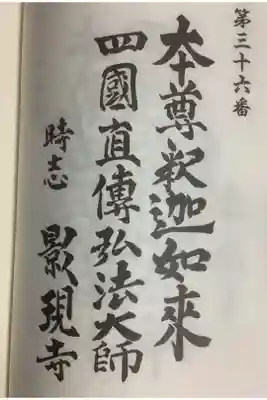 第三十六番
本尊釈迦如来
四國直傳弘法大師
時志 影現寺